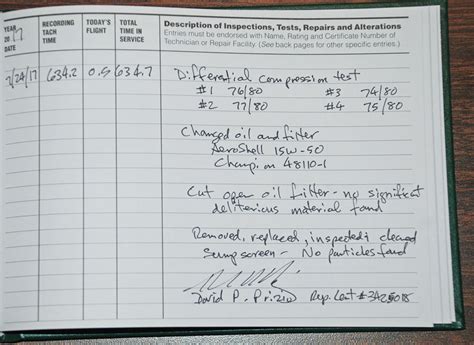 YEAR
20 17
DATE
RECORDING
TACH
TIME
TODAY'S
FLIGHT
TOTAL
TIME IN
SERVICE
Description of Inspections, Tests, Repairs and Alterations
Entries must be endorsed with Name, Rating and Certificate Number of
Technician or Repair Facility. (See back pages for other specific entries.)
7/24/17 634.2 0.5 634.7 Differential compression test
#1 76/80 #3 74/80
#2 77/80 #4 75/80
Changed oil and filter
AeroShell 15W-50
Champion 48110-1
Cut open oil filter - no significat
deliterious material fond
Removed, replaced, inspected & cleaned
Sump screen - No particles fond
David P. Prizio Rep. Cert #